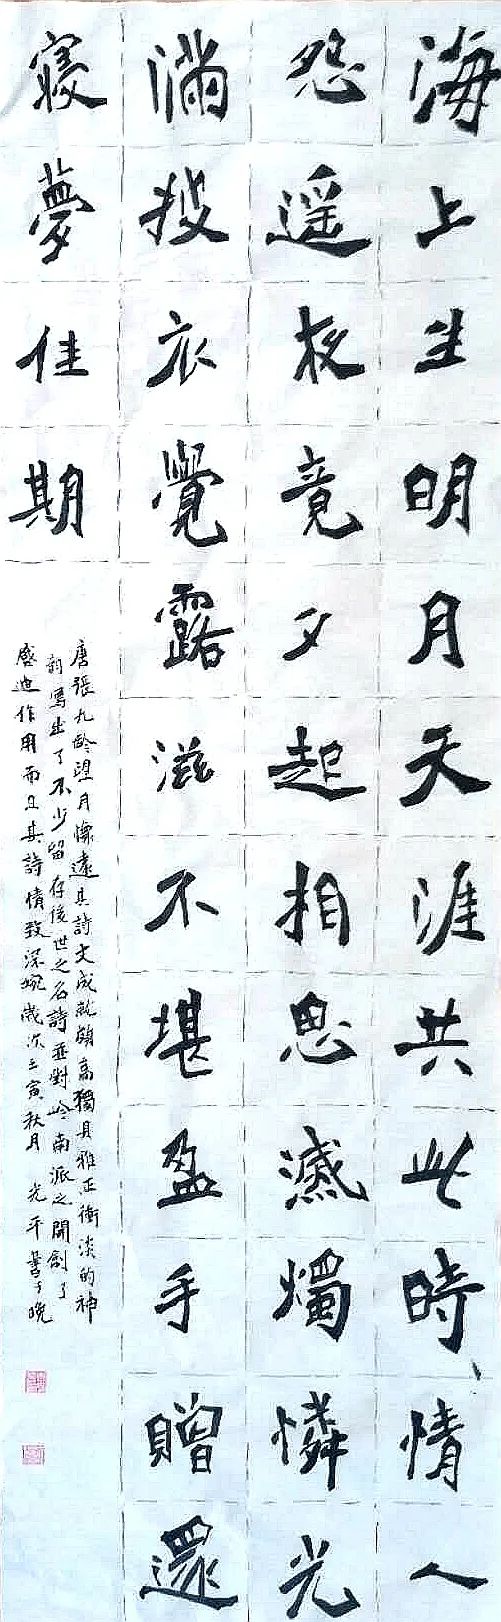 海上生明月天涯共此時情人
怨遥夜竟夕起相思滅燭憐光
滿披衣覺露滋不堪盈手贈還
寝夢佳期
唐張九龄望月懷遠其詩文成就頗高獨具雅正衝淡的神
韵寫出了不少留存後世之名詩並對岭南派之開創了
感迪作用而且其詩情致深婉歲次壬寅秋月 光平書于晚